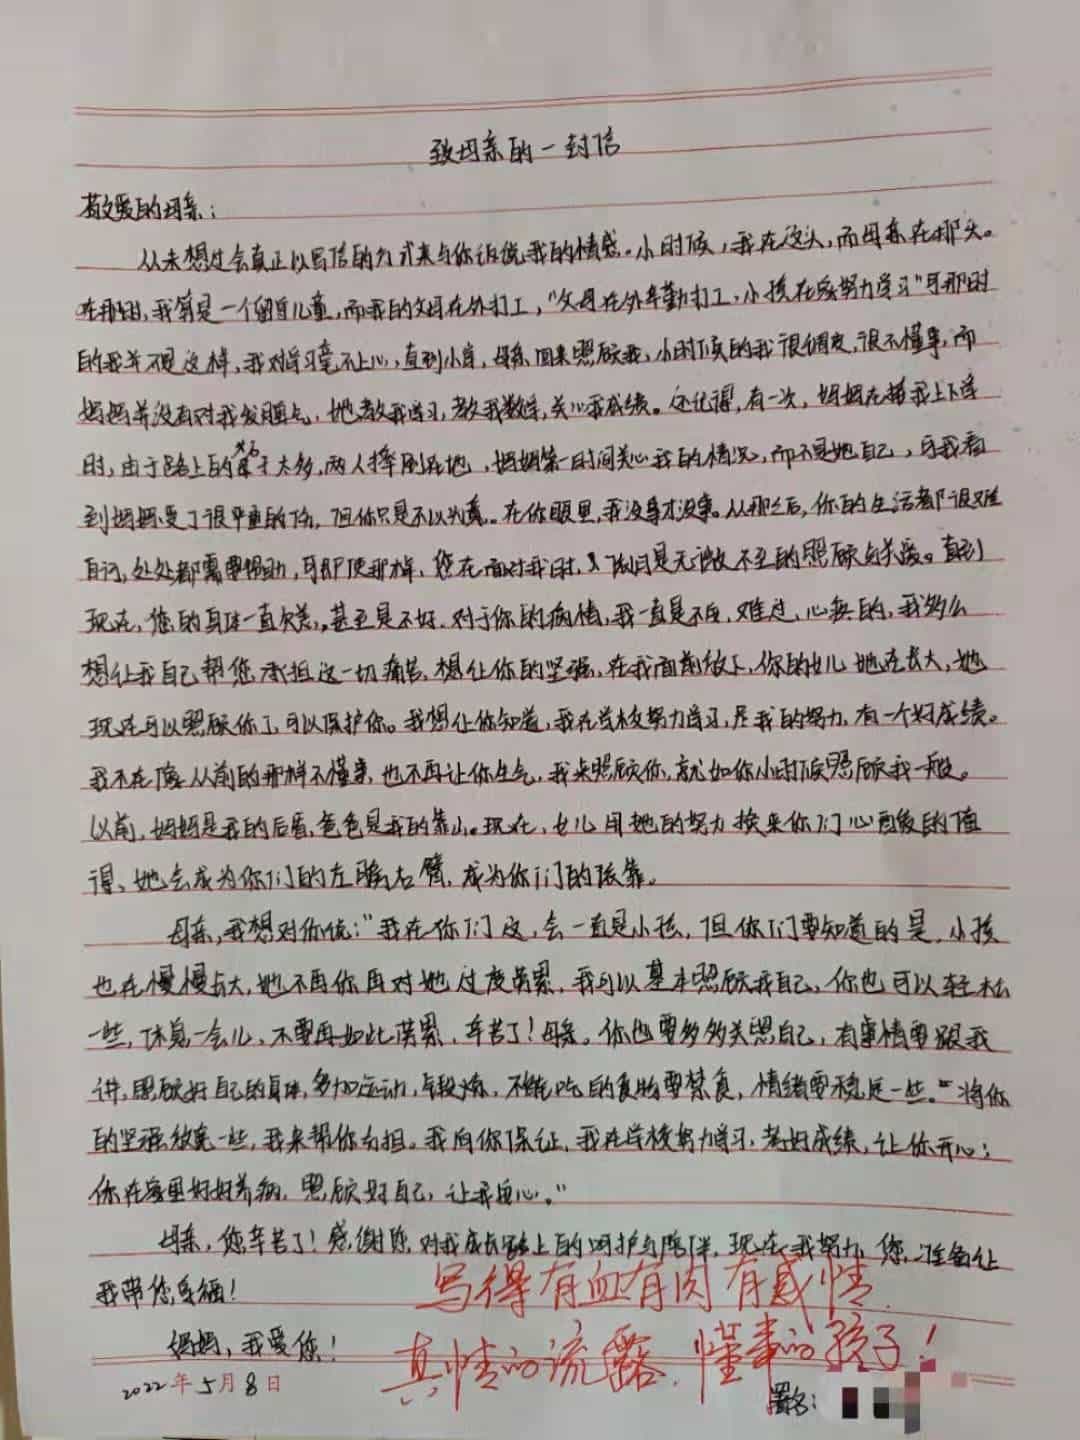 致母亲的一封信
敬爱的母亲：
从未想过会真正以写信的方式来与你诉说我的情感。小时候，我在这头，而母亲在那头。
在那时，我算是一个留守儿童，而我的父母在外打工，"父母在外辛勤打工，小孩在家努力学习"可那时
的我并不是这样，我对学习毫不上心，直到小学，母亲回来照顾我，小时候的我很调皮，很不懂事，而
妈妈并没有对我发脾气，她教我学习，教我数学，关心我成绩。还记得，有一次，妈妈在接我上下学
时，由于路上的石子太多，两人摔倒在地，妈妈第一时间关心我的情况，而不是她自己，可我看
到妈妈受了很严重的伤，但你只是不以为意。在你眼里，我没事才没事。从那之后，你的生活都很难
自词，处处都需要帮助，可即使那样，您在面对我时，仍旧是无微不至的照顾与关爱。直到
现在，您的身体一直欠差，甚至是不好，对于你的病情，我一直是不安，难过，心疼的，我多么
想让我自己帮您承担这一切痛苦，想让你的坚强，在我面前放下，你的女儿她在长大，她
现在可以照顾你了，可以保护你。我想让你知道，我在学校努力学习，尽我的努力，有一个好成绩。
我不在像从前的那样不懂事，也不再让你生气，我来照顾你，就如你小时候照顾我一般。
以前，妈妈是我的后盾，爸爸是我的靠山。现在，女儿用她的努力换来你们心酸的值
得、她会成为你们的左膀右臂，成为你们的依靠。
母亲，我想对你说："我在你们这，会一直是小孩，但你们要知道的是，小孩
也在慢慢长大，她不再你再对她过度劳累，我可以基本照顾我自己，你也可以轻松
一些，休息一会儿，不要再如此劳累，辛苦了！母亲。你也要多多关照自己，有事情要跟我
讲，照顾好自己的身体，多加运动，与锻炼，不能吃的食物要禁食，情绪要稳定一些。"将你
的坚强放宽一些，我来帮你分担。我向你保证，我在学校努力学习，考好成绩，让你开心；
你在家里好好养病，照顾好自己，让我安心。"
母亲，您辛苦了！感谢您对我成长路上的呵护与陪伴，现在我努力，您，准备让
我带您享福！
妈妈，我爱您！
写得有血有肉有感情，
真情的流露，懂事的孩子！
2022年5月8日
署名：